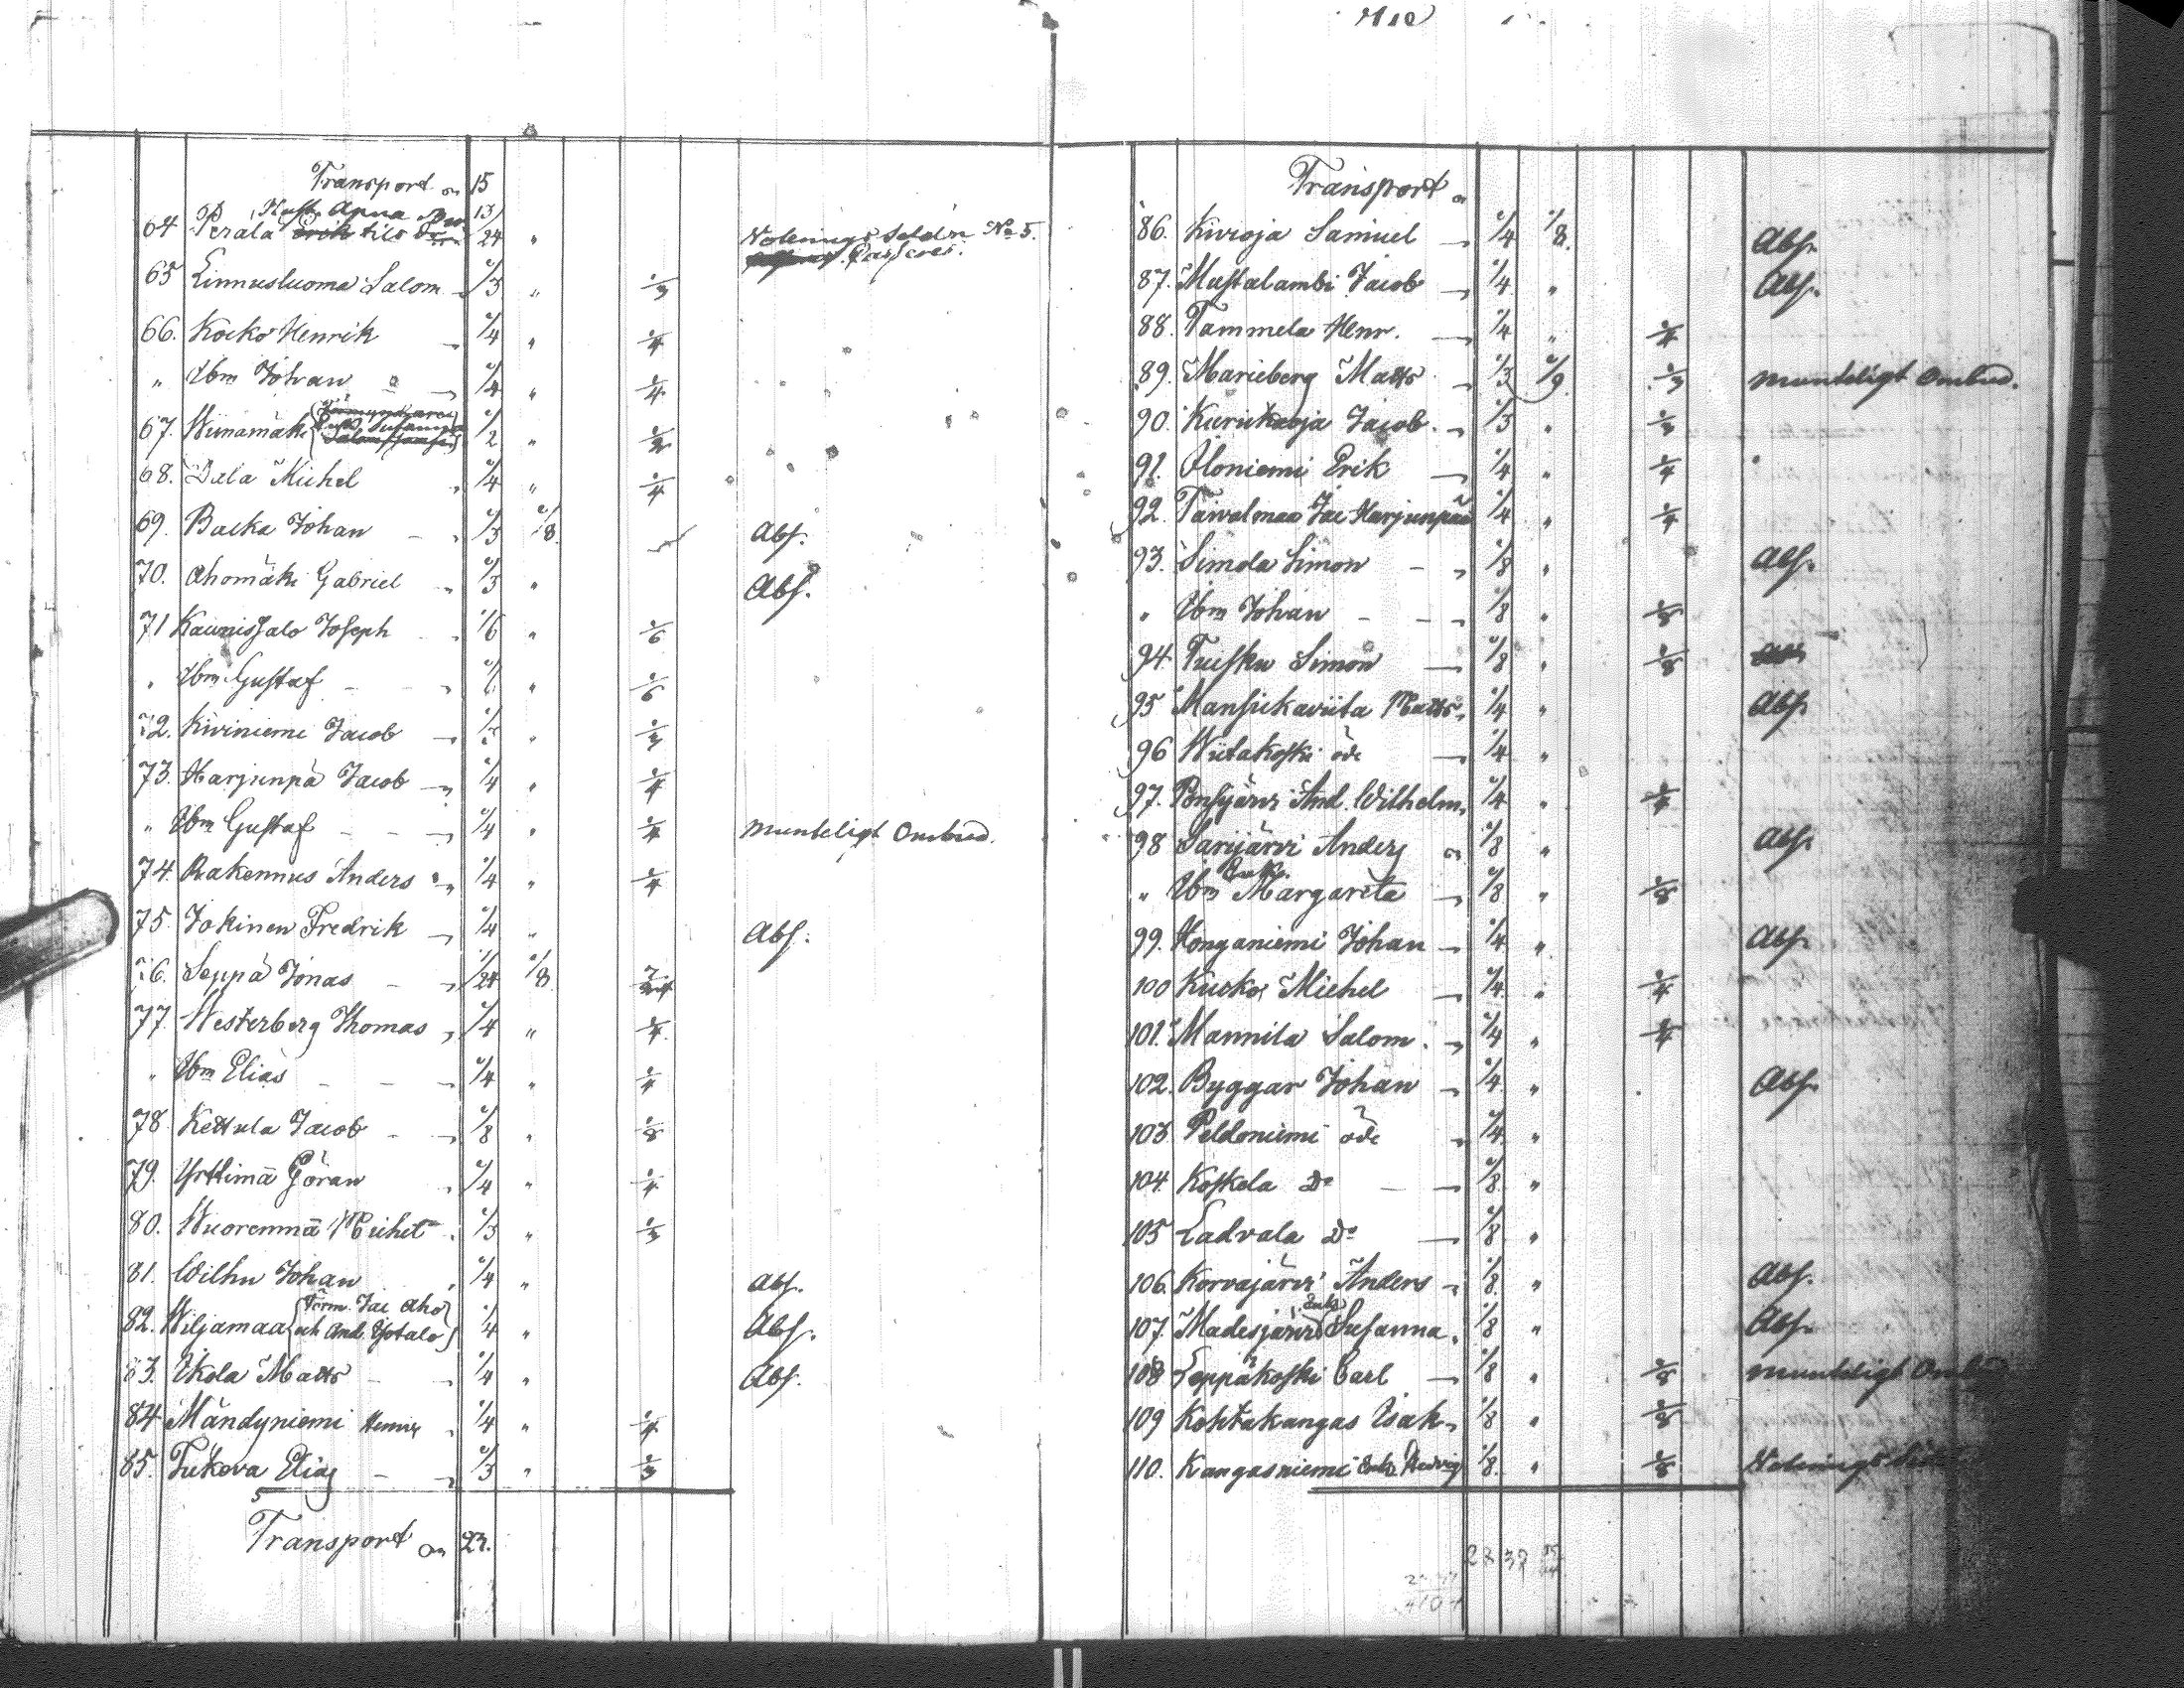 Transport 15
64 Perälä Anna 13/24 " Noterings Sedeln No 5.
65 Linnusluoma Salom 1/3 " 1/3
66. Kocko Henrik 1/4 " 1/4
" Ibm Johan 1/4 " 1/4
67. Wiinamäki 1/2 " 1/2
68. Dala Michel 1/4 " 1/4
69. Backa Johan 1/3 1/8 Abs.
70. Ahomäki Gabriel 1/3 " Abs.
71 Kaunissalo Joseph 1/6 " 1/6
" Ibm Gustaf " 1/6
72. Kiviniemi Jacob " 1/3
73. Harjunpä Jacob 1/4 " 1/4
" Ibm Gustaf 1/4 " 1/4 Munteligt Ombud.
74. Rakennus Anders 1/4 " 1/4
75. Jokinen Fredrik 1/4 " Abs.
76. Seppä Jonas 1/8
77. Westerberg Thomas 1/4 " 1/4
" Ibm Elias 1/4 " 1/4
78 Kettula Jacob 1/8 " 1/8
79. Yrttimä Göran 1/4 " 1/4
80. Wuorenmä Michel 1/3 " 1/3
81. Wilhu Johan 1/4 " Abs.
82. Wiljamaa {Förm. Jac Aho
och And. Yotalo} 1/4 " Abs.
83. Ikola Matts 1/4 " Abs.
84 Mändyniemi 1/4 " 1/4
85. Tukeva Elias 1/3 " 1/3
Transport 23.
Transport
86. Kivioja Samuel 1/4 1/8 Abs.
87. Mustalambi Jacob 1/4 " Abs.
88. Tammela Henr. 1/4 " 1/4
89. Marieberg Matts 1/3 1/9 1/3 Munteligt Ombud.
90. Kurikaoja Jacob 1/3 " 1/3
91. Oloniemi Erik 1/4 " 1/4
92. Taivalmaa Jac Harjunpää 1/4 " 1/4
93. Simola Simon 1/8 " Abs.
" Ibm Johan 1/8 " 1/8
94 Tuisku Simon 1/8 " 1/8
95 Mansikaviita Matts 1/4 " Abs
96 Wiitakoski öde 1/4 "
97. Ponsijärvi And. Wilhelm 1/4 " 1/4
98 Sarijärvi Anders 1/8 " Abs.
" Ibm Enk. Margareta 1/8 " 1/8
99. Honganiemi Johan 1/4 " Abs.
100 Kucko Michel 1/4 " 1/4
101. Mannila Salom. 1/4 " 1/4
102. Byggar Johan 1/4 " Abs.
103 Peldoniemi öde 1/4 "
104 Koskela Do 1/8 "
105 Ladvala Do 1/8 "
106. Korvajärvi Anders 1/8 " Abs.
107. Madesjärvi Enk. Susanna 1/8 " Abs.
108 Leppäkoski Carl 1/8 " 1/8 Munteligt
109 Kohtakangas Isak 1/8 " 1/8
110. Kangasniemi Enk. Hedvig 1/8 " 1/8 Noterings